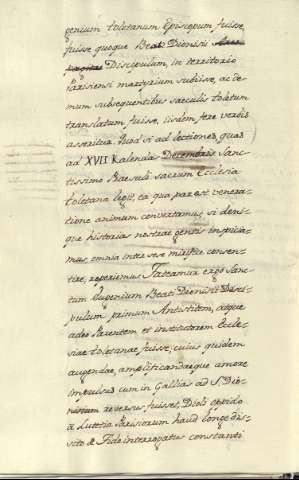 genium toletanum Episcopum fuisse,
fuisse quoque Beati Dionisi Areo-
pagitae Discipulum, in territorio
Parisiensi martyrium subiisse, ac de-
mum subsequentibus saeculis toletum
translatum fuisse, iisdem fere verbis
asseritur. Quod si ad lectiones, quas
ad XVII Kalendas Decembris Sanc-
tissima Basculi sacrum Ecclesia
toletana legit, ea qua par est venera-
tione animum convertamus, si deni-
que historias nostrae gentis inspicia-
mus, omnia inter se mirifice consen-
tire, reperiemus. Fateamur ergo Sanc-
tum Eugenium Beati Dionisii Disci-
pulum primum Antistitem, atque
adeo Parentem et institutorem Eccle-
siae toletanae fuisse, cuius quidem
augendae, amplificandaeque amore
impulsus cum in Gallias ad S. Dio-
nisium reversus, fuisset, Dioli oppido
a Lutetia Parisiorum haud longe dis-
sito de Fide interrogatus constanti